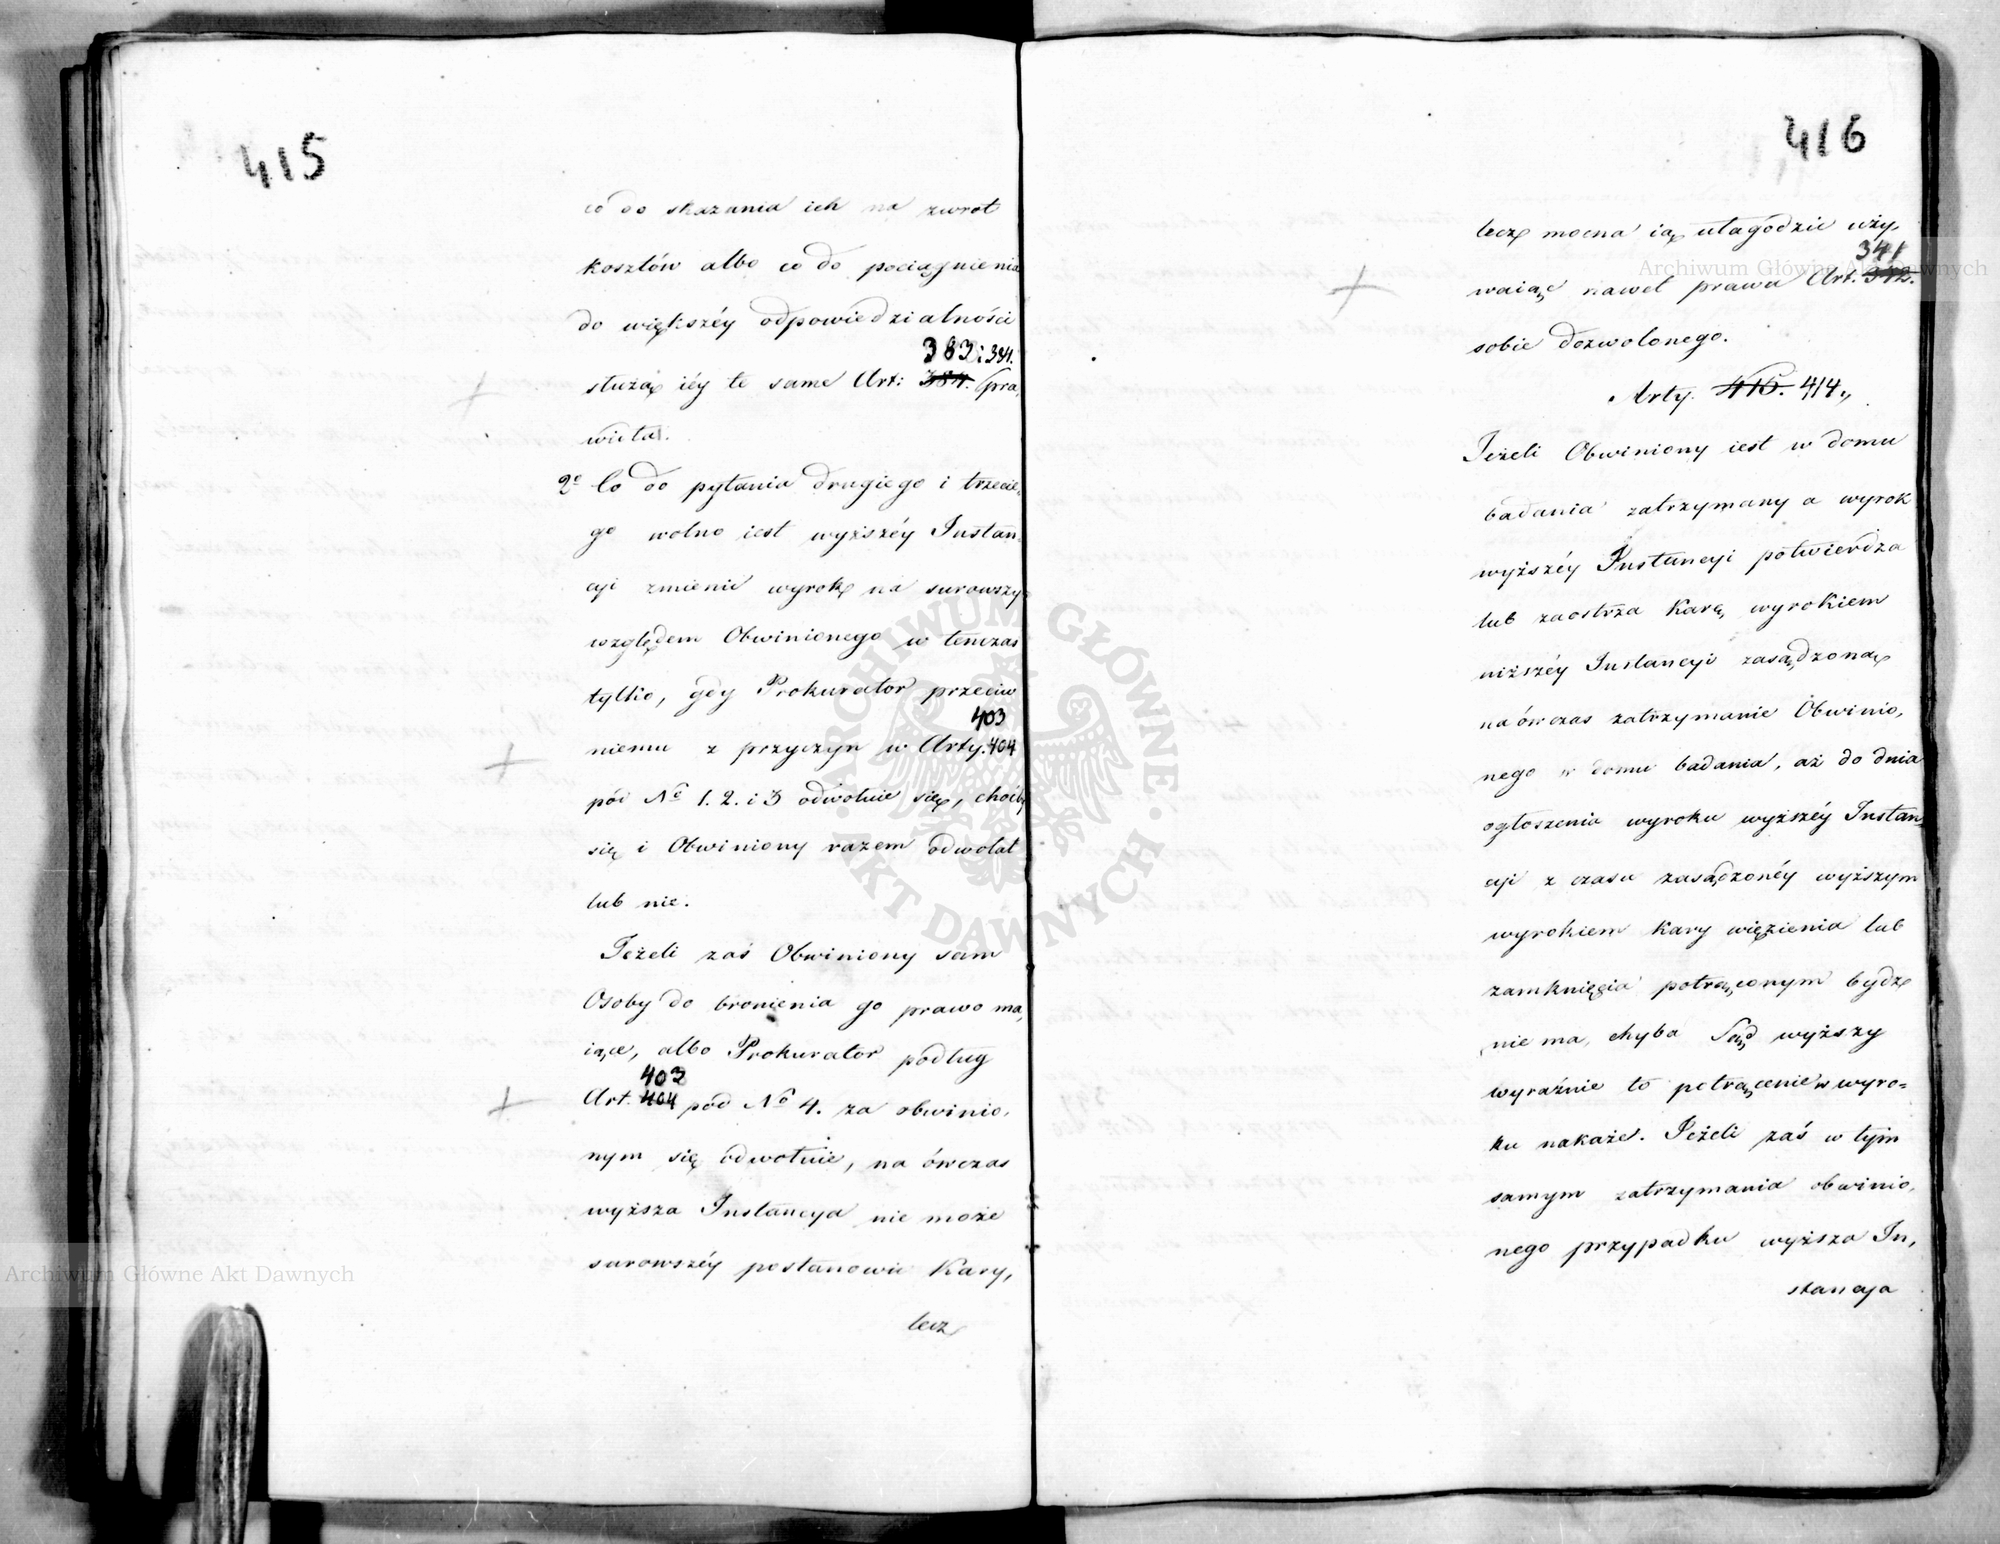 415
co do skazania ich na zwrot
kosztów albo co do pociągnienia
do większéy odpowiedzialności
383 i 384.
służą iéy te same Art: 384. pra,
widła.
2o Co do pytania drugiego i trzecie,
go wolno iest wyższéy Instan,
cyi zmienić wyrok na surowszy
względem Obwinionego w tenczas
tylko, gdy Prokurator przeciw
403
niemu z przyczyn w Arty. 404
pod No 1. 2. i 3 odwołuie się, choćby
się i Obwiniony razem odwołał
lub nie.
Ieżeli zaś Obwiniony sam
Osoby do bronienia go prawo ma,
iące, albo Prokurator podług
403
Art. 404 pod No 4. za obwinio,
nym się odwołuie, na ówczas
wyższa Instancya nie może
surowszéy postanowić Kary,
lecz
416
lecz mocna ią ułagodzić uży,
341
waiąc nawet prawa Art. 342.
sobie dozwolonego.
Arty. 415. 414.,
Ieżeli Obwiniony iest w domu
badania zatrzymany a wyrok
wyższéy Instancyi potwierdza
lub zaostrza Karę wyrokiem
niższéy Instancyi zasądzoną
na ówczas zatrzymanie Obwinio,
nego w domu badania, aż do dnia
ogłoszenia wyroku wyższéy Instan=
cyi z czasu zasądzonéy wyższym
wyrokiem kary więzienia lub
zamknięcia potrąconym bydź
nie ma, chyba Sąd wyższy
wyraźnie to potrącenie w wyro=
ku nakaże. Ieżeli zaś w tym
samym zatrzymania obwinio,
nego przypadku wyższa In,
stancya
Archiwum Główne Akt Dawnych
Archiwum Główne Akt Dawnych
ARCHIWUM GŁÓWNE · AKT DAWNYCH ·